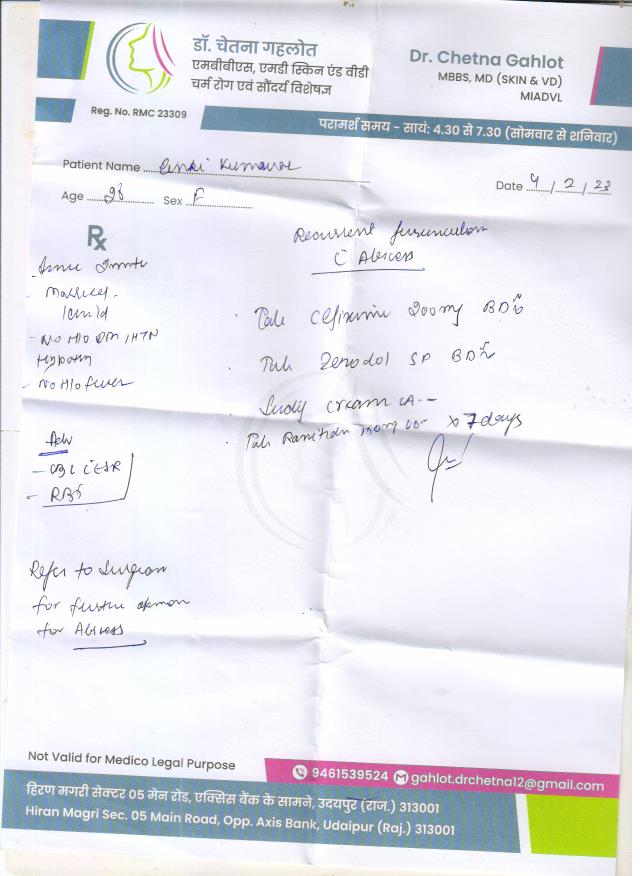 डॉ. चेतना गहलोत
एमबीबीएस, एमडी स्किन एंड वीडी
चर्म रोग एवं सौंदर्य विशेषज्ञ
Reg. No. RMC 23309
Dr. Chetna Gahlot
MBBS, MD (SKIN & VD)
MIADVL
परामर्श समय - सायं: 4.30 से 7.30 (सोमवार से शनिवार)
Patient Name Kumawat
Date 9/2/23
Age 28 Sex F
Rx
Recurrent furunculosis
c̄ Abscess
- No H/o DM/HTN
- No H/o fever
Tab Cefixime 200mg BD
Tab Zerodol SP BD
cream LA
Tab Ranitidin 150mg x 7 days
Adv
- CBC c̄ ESR
- RBS
Refer to Surgeon
for further opinion
for Abscess
Not Valid for Medico Legal Purpose
9461539524 gahlot.drchetna12@gmail.com
हिरण मगरी सेक्टर 05 मेन रोड, एक्सिस बैंक के सामने, उदयपुर (राज.) 313001
Hiran Magri Sec. 05 Main Road, Opp. Axis Bank, Udaipur (Raj.) 313001